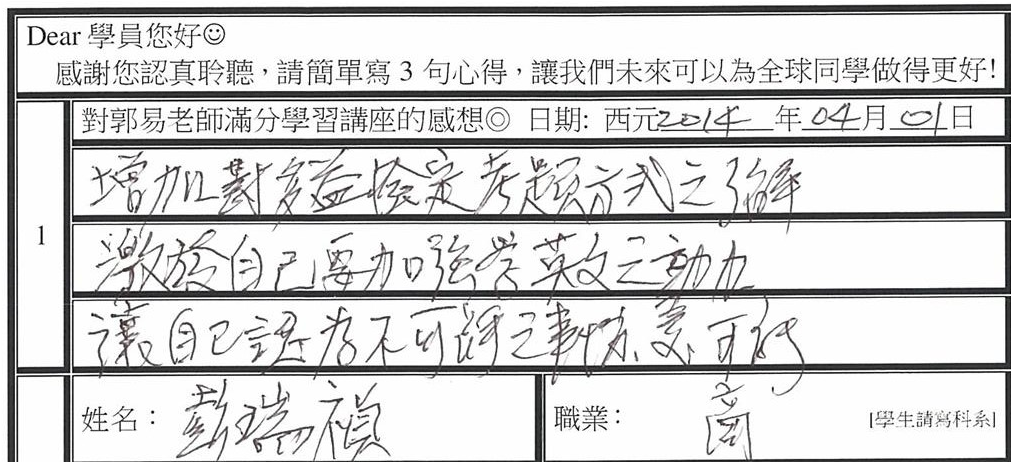 Dear 學員您好☺
感謝您認真聆聽，請簡單寫 3 句心得，讓我們未來可以為全球同學做得更好!
1
對郭易老師滿分學習講座的感想◎ 日期: 西元2014年04月01日
增加對多益檢定考題方式之了解
激發自己要加強英文之動力
讓自己認為不可能之事情變可能
姓名： 彭瑞禎
職業： 商 [學生請寫科系]